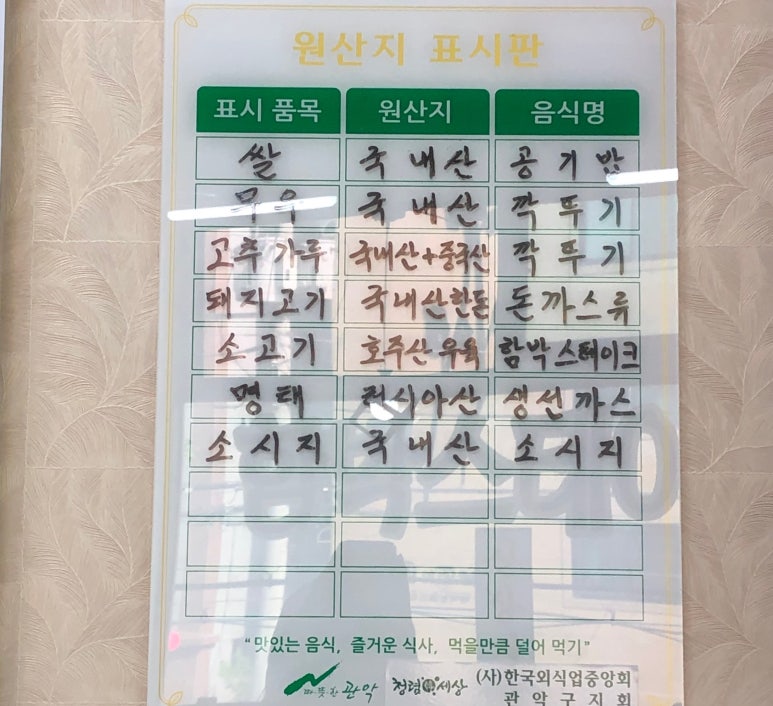 원산지 표시판
표시 품목 원산지 음식명
쌀 국내산 공기밥
무우 국내산 깍뚜기
고추가루 국내산+중국산 깍뚜기
돼지고기 국내산한돈 돈까스류
소고기 호주산 우육 함박스테이크
명태 러시아산 생선까스
소시지 국내산 소시지
"맛있는 음식, 즐거운 식사, 먹을만큼 덜어 먹기"
따뜻한 관악 청렴 세상 (사)한국외식업중앙회
관악구지회